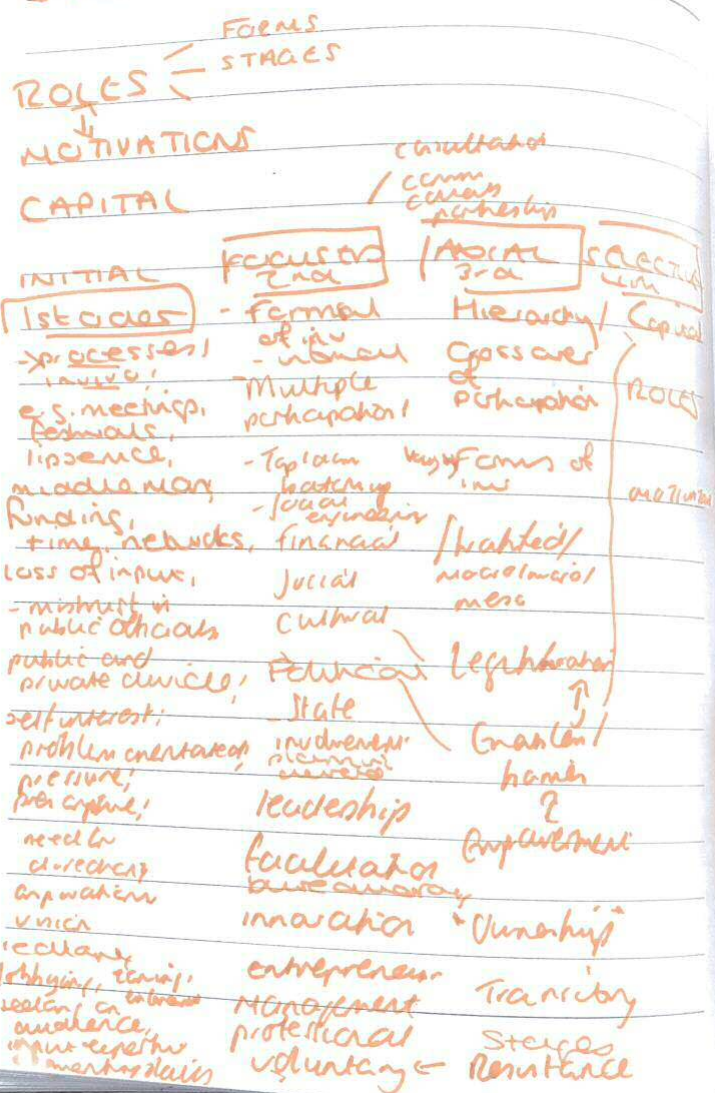 FORMS
STAGES
ROLES
MOTIVATIONS
CAPITAL
consultation
comm
partnership
INITIAL
1st codes
processes/
e.g. meetings,
festivals,
middle man,
funding,
time, networks,
loss of input,
- mistrust in
public officials
public and
private divide,
self interest,
problem orientated
pressure,
need for
vision
lobbying, zoning,
audience,
FOCUSED
2nd
- Formal
of inv
- informal
- Multiple
participation/
- Top down
bottom up
- social
engineering
financial
social
cultural
Political
- State
involvement
leadership
facilitator
bureaucracy
innovation
entrepreneur
management
professional
voluntary ←
AXIAL
3rd
Hierarchy/
Crossover
of
participation
Forms of
inv
macro/micro/
meso
Legitimation
Enabler/
Empowerment
"Ownership"
Transitory
Stages
Resistance
SELECTIVE
Capital
ROLES
motivation